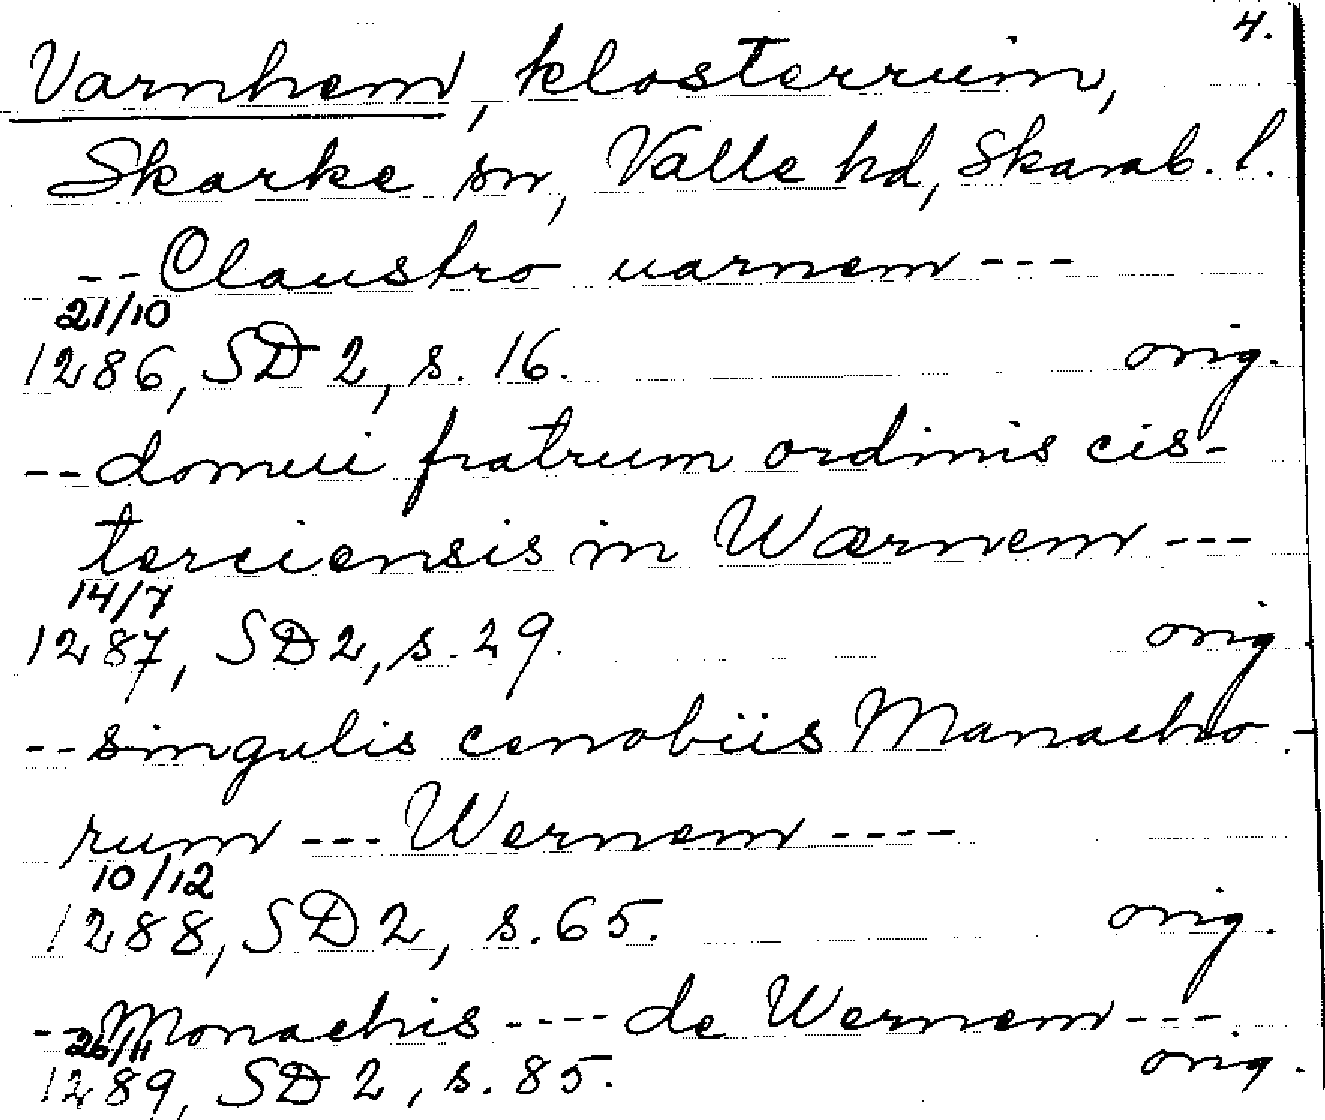 4.
Varnhem, klosterruin,
Skarke sn, Valle hd, Skarab. l.
-- Claustro uarnem ---
21/10
1286, SD 2, s. 16. orig.
-- domui fratrum ordinis cis-
terciensis in Wærnem ---
14/7
1287, SD 2, s. 29. orig
-- singulis cenobiis Monacho-
rum --- Wernem ----
10/12
1288, SD 2, s. 65. orig.
-- Monachis ---- de Wernem ---.
26/11
1289, SD 2, s. 85. orig.